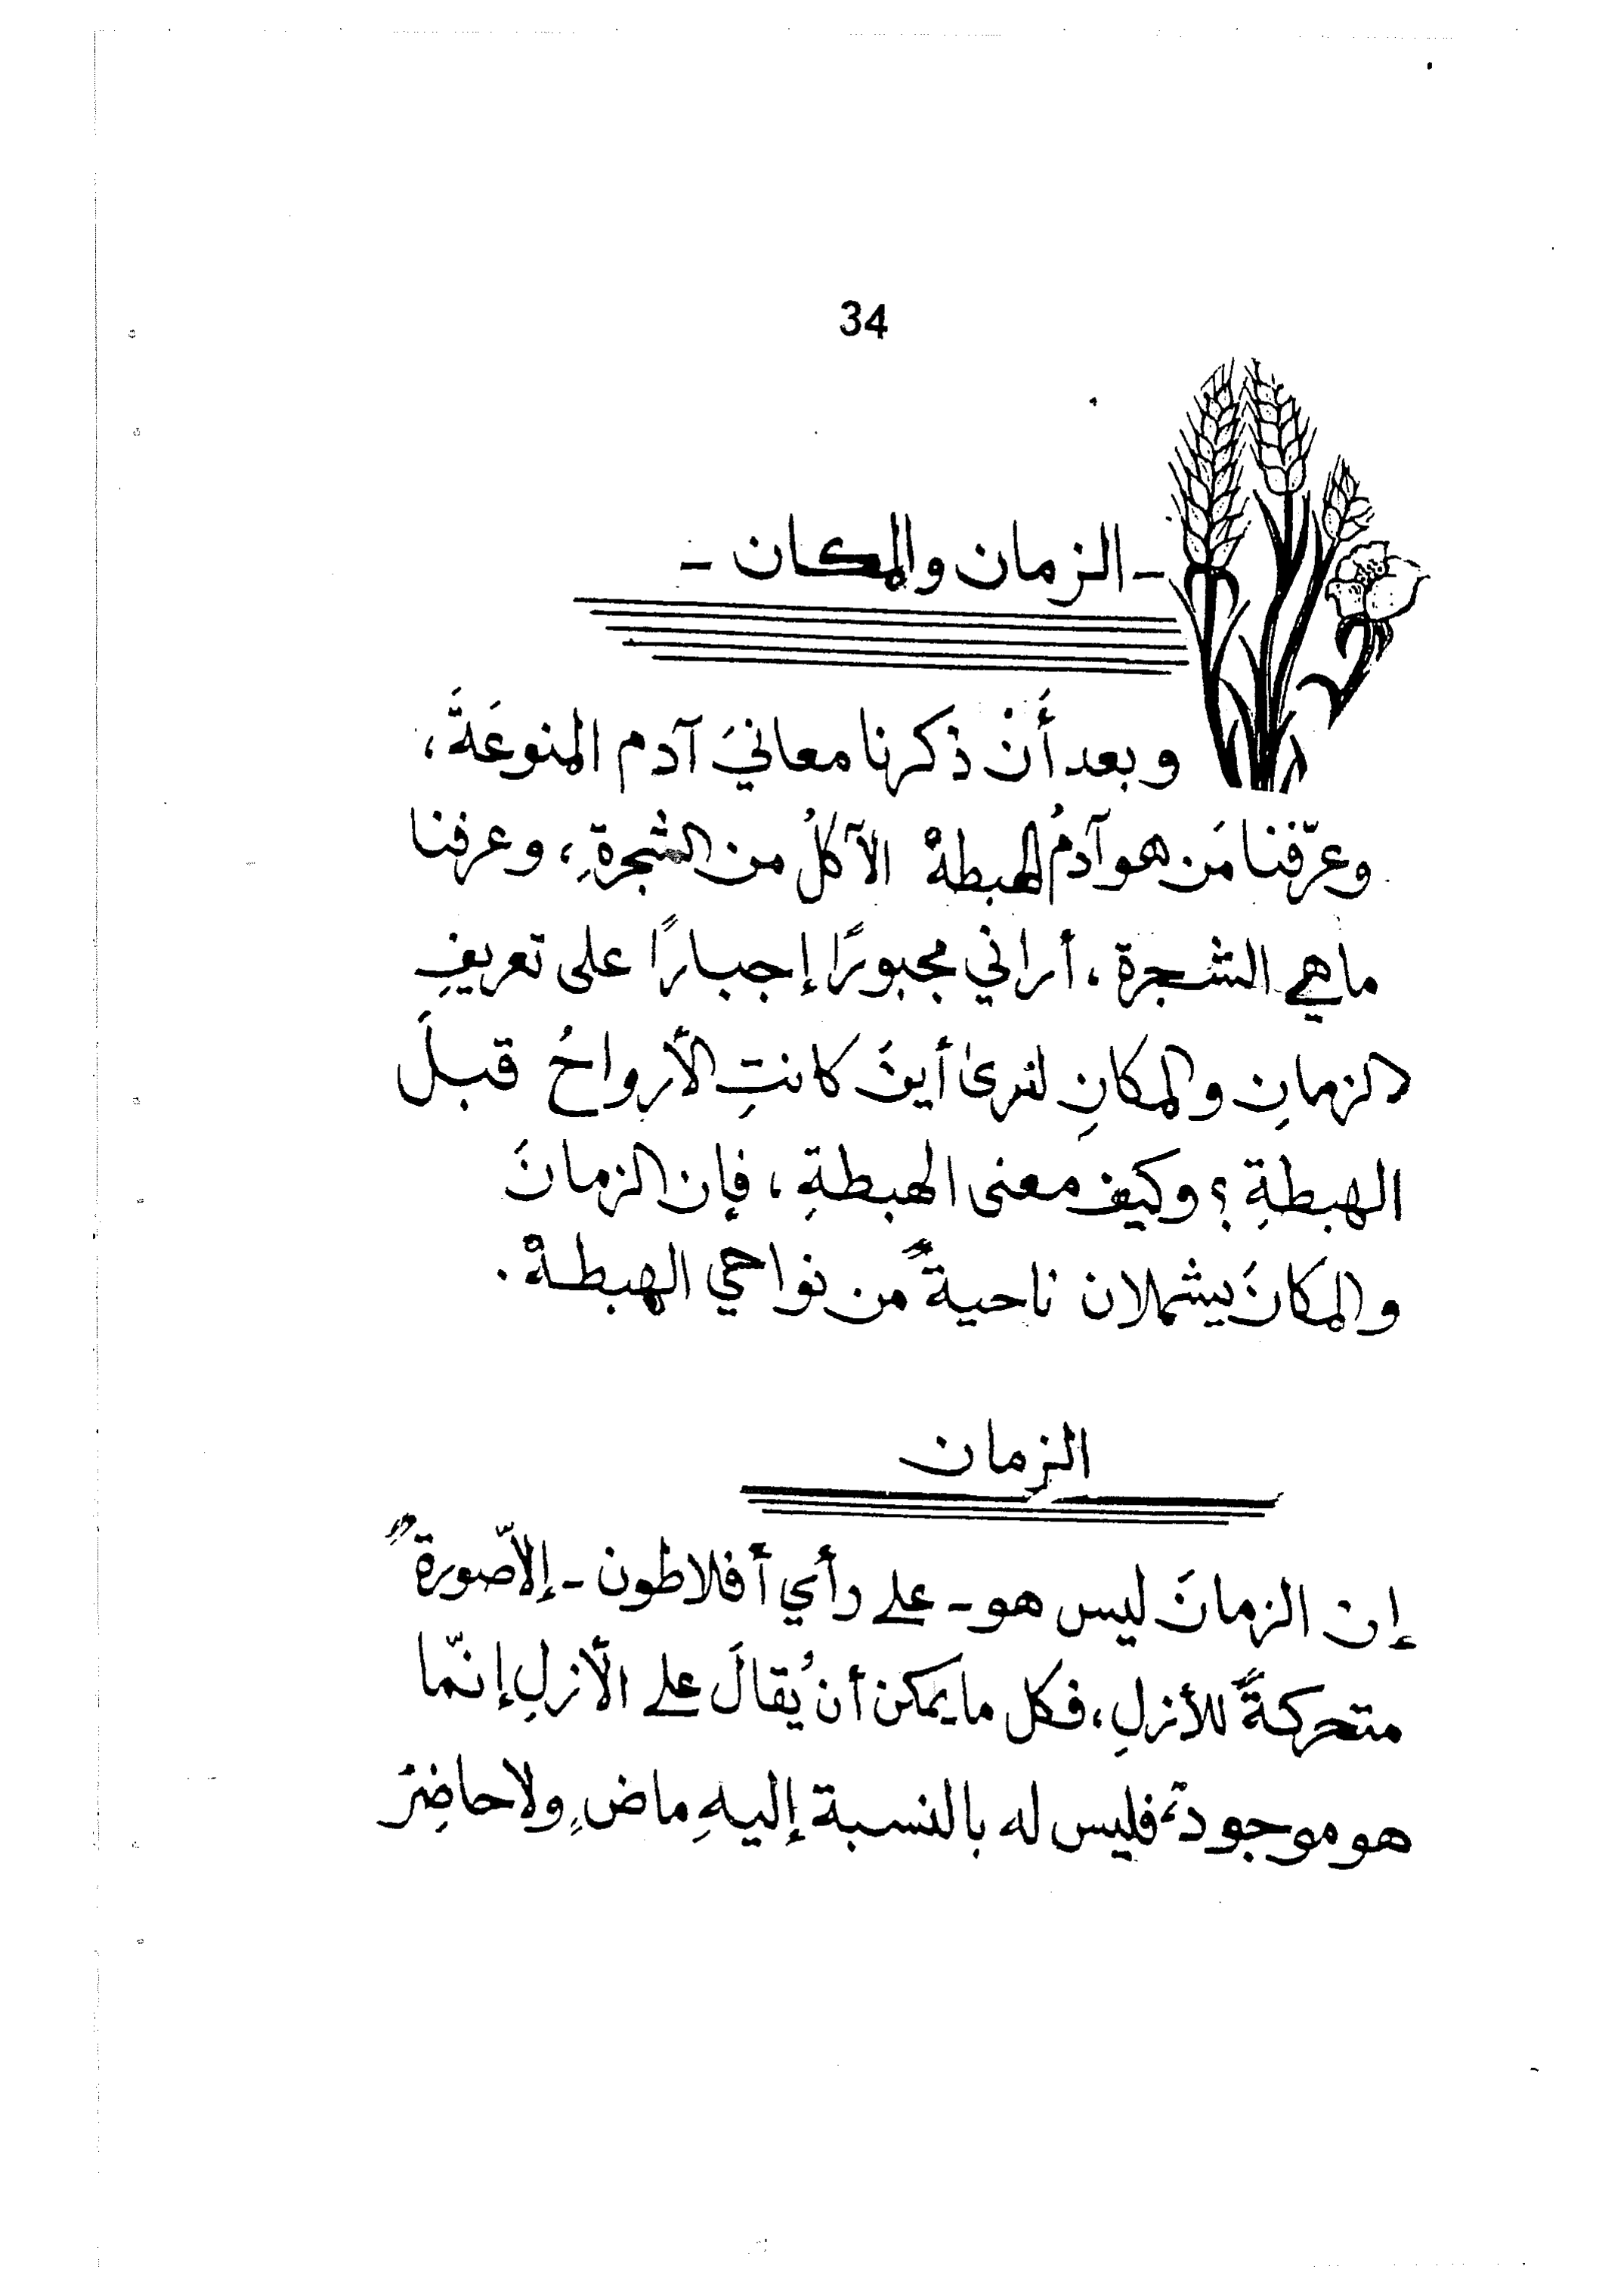 34
- الزمان والمكان -
وبعد أَنْ ذكرنا معانيَ آدم المنوعَةَ،
وعرّفنا مَن هو آدمُ الهبطةْ الآكلُ من الشجرةِ، وعرفنا
ماهي الشجرة، أراني مجبورًا إجبارًا على تعريفِ
الزمانِ والمكانِ لنرىٰ أينَ كانتِ الأرواحُ قبلَ
الهبطةِ؟ وكيف معنى الهبطةِ، فإن الزمانَ
والمكانَ يشملان ناحيةً من نواحي الهبطةْ.
الزمان
إن الزمانَ ليس هو- على رأي أفلاطون- إلاّ صورةٌ
متحركةٌ للأزلِ، فكل مايمكن أن يُقالَ على الأزلِ إنّما
هو موجودٌ، فليس له بالنسبة إليهِ ماضٍ ولا حاضِرٌ